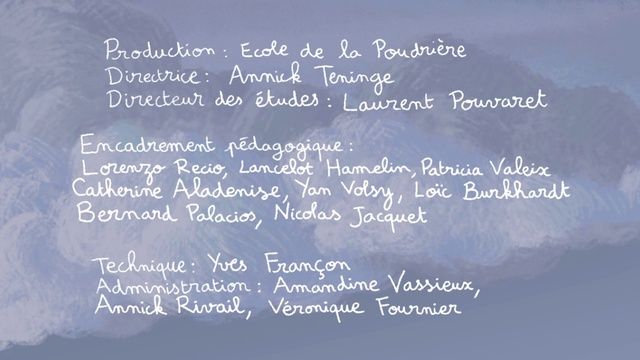 Production : Ecole de la Poudrière
Directrice : Annick Teninge
Directeur des études : Laurent Pouvaret
Encadrement pédagogique :
Lorenzo Recio, Lancelot Hamelin, Patricia Valeix
Catherine Aladenise, Yan Volsy, Loïc Burkhardt
Bernard Palacios, Nicolas Jacquet
Technique : Yves Françon
Administration : Amandine Vassieux,
Annick Rivail, Véronique Fournier